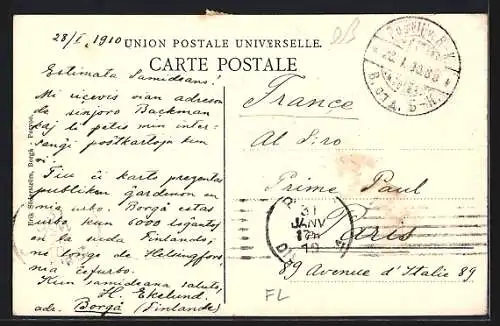 28/I. 1910
UNION POSTALE UNIVERSELLE.
CARTE POSTALE
Estimata Samideano!
Mi ricevis vian adreson
de sinjoro Backman
kaj li petis min inter-
sangi postkartojn kun
vi.
Tiu ĉi karto prezentas
publikan ĝardenon en
mia urbo. Borgå estas
urbo kun 6000 loĝantoj
en la suda Finlando,
ne longe de Helsingfors,
nia ĉefurbo.
Kun samideana saluto,
H. Ekelund.
adr. Borgå (Finlande)
France
Al Siro
Prime Paul
Paris
89 Avenue d'Italie 89.
PARIS
31
JANV
10
FL